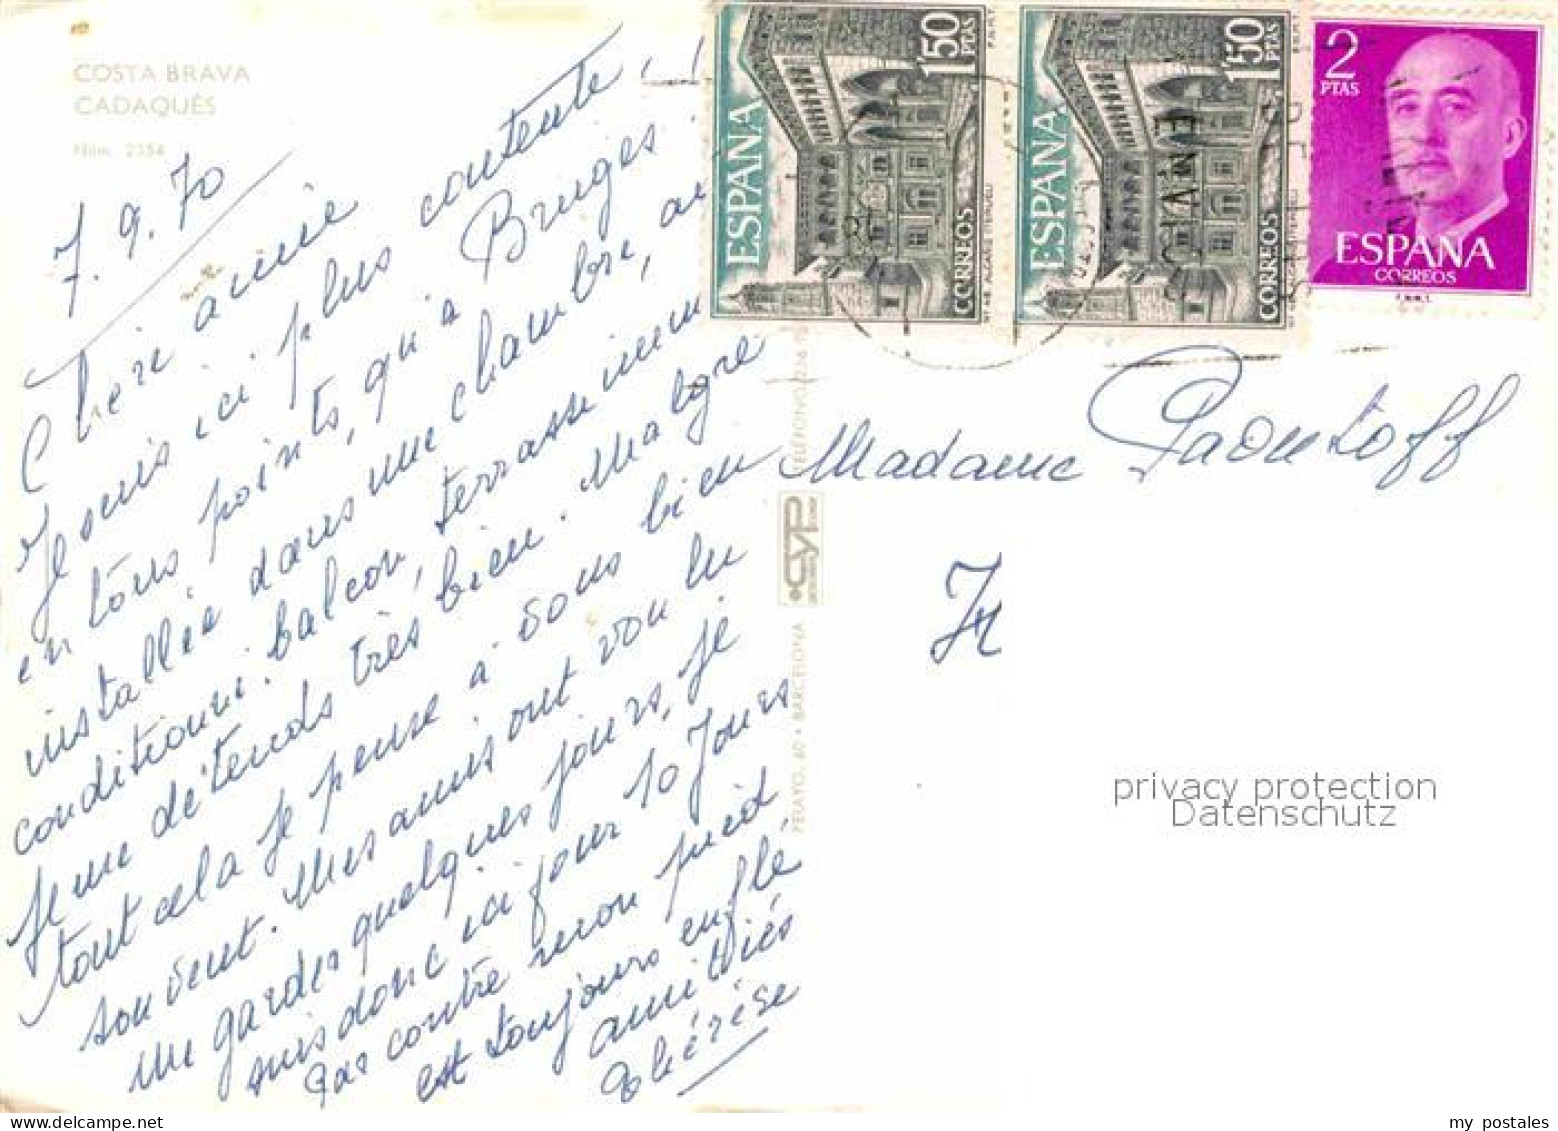 COSTA BRAVA
CADAQUÉS
Núm. 2354
7.9.70
Cheri amie
Je suis ici plus contente,
en tous points, qu'à Bruges
installée dans une chambre, air
conditionné. balcon, terrasse imm
Je me détends très bien. Malgre
tout cela je pense à vous bien
souvent. Mes amis ont voulu
me garder quelques jours, je
suis donc ici pour 10 jours
Par contre mon pied
est toujours enflé
amitiés
Thérèse
PELAYO, 60 • BARCELONA
TELEFONO
CYP
ESPAÑA
CORREOS
1'50
PTAS
F.N.M.T.
ESPAÑA
CORREOS
1'50
PTAS
2
PTAS
ESPAÑA
CORREOS
F.N.M.T.
Madame Paontoff
privacy protection
Datenschutz
my postales